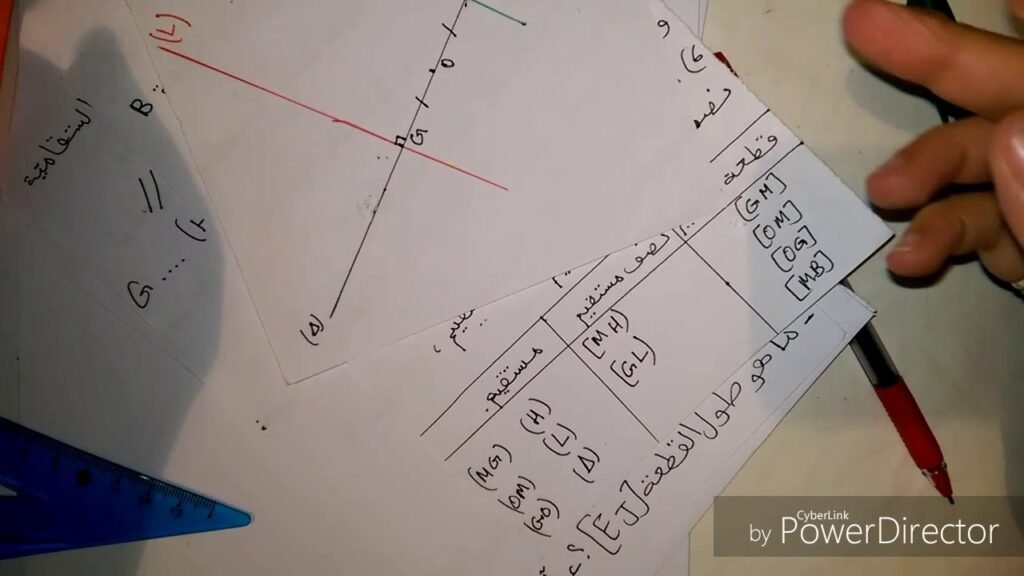 (L)
O
G
(Δ)
B
//
G .... (L
استقامية
و
(6
نصف
قطعة
[GM]
[OM]
[OG]
[MB]
نصف مستقيم
[MH)
[GL)
مستقيم
(MG)
(OM)
(GO)
(H)
(L)
(Δ)
- ما هو طول القطعة [EJ] ؟
CyberLink
by PowerDirector